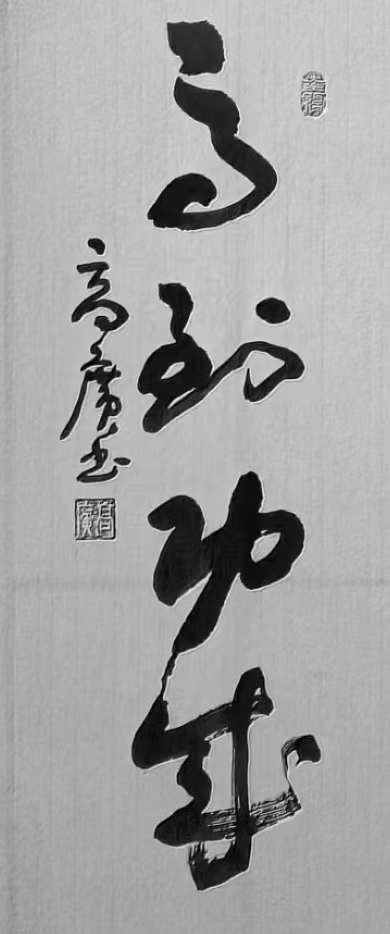 马到功成
高 书